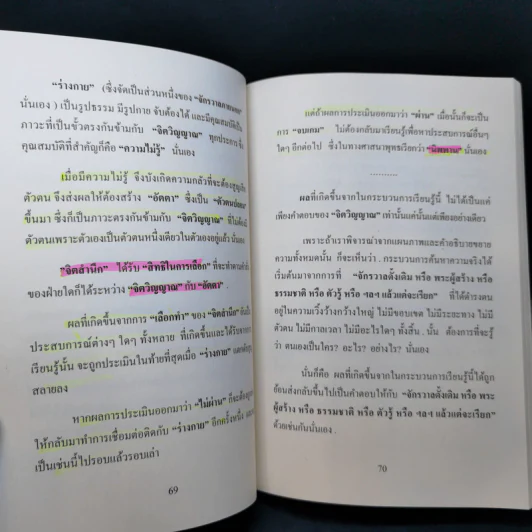 “ร่างกาย” (ซึ่งจัดเป็นส่วนหนึ่งของ “จักรวาลภายนอก”
นั่นเอง ) เป็นรูปธรรม มีรูปกาย จับต้องได้ และมีคุณสมบัติเป็น
ภาวะที่เป็นขั้วตรงกันข้ามกับ “จิตวิญญาณ” ทุกประการ ซึ่ง
คุณสมบัติที่สำคัญก็คือ “ความไม่รู้” นั่นเอง
เมื่อมีความไม่รู้ จึงบังเกิดความกลัวที่จะต้องสูญเสีย
ตัวตน จึงส่งผลให้ต้องสร้าง “อัตตา” ซึ่งเป็น
ขึ้นมา ซึ่งถือเป็นภาวะตรงกันข้ามกับ “จิตวิญญาณ” ที่ไม่ต้องมี
ตัวตนเพราะตัวเองเป็นตัวตนหนึ่งเดียวในตัวเองอยู่แล้ว นั่นเอง
“จิตสำนึก” ได้รับ “สิทธิในการเลือก” ที่จะทำตามคำสั่ง
ของฝ่ายใดก็ได้ระหว่าง “จิตวิญญาณ” กับ “อัตตา” .
ผลที่เกิดขึ้นจากการ “เลือกทำ” ของ “จิตสำนึก”
ประสบการณ์ต่างๆ ใดๆ ทั้งหลาย ที่เกิดขึ้นและได้รับจาก
เรียนรู้นั้น จะถูกประเมินในท้ายที่สุดเมื่อ “ร่างกาย”
สลายลง
หากผลการประเมินออกมาว่า “ไม่ผ่าน” ก็จะต้อง
ให้กลับมาทำการเชื่อมต่อติดกับ “ร่างกาย” อีกครั้งหนึ่ง
เป็นเช่นนี้ไปรอบแล้วรอบเล่า
69
แต่ถ้าผลการประเมินออกมาว่า “ผ่าน” เมื่อนั้นก็จะเป็น
การ “จบเกม” ไม่ต้องกลับมาเรียนรู้เพื่อหาประสบการณ์อื่นๆ
ใดๆ อีกต่อไป ซึ่งในทางศาสนาพุทธเรียกว่า “นิพพาน” นั่นเอง
..........
ผลที่เกิดขึ้นจากในกระบวนการเรียนรู้นี้ ไม่ได้เป็นแค่
เพียงคำตอบของ “จิตวิญญาณ” เท่านั้นแต่นั้นแต่เพียงอย่างเดียว
เพราะถ้าเราพิจารณาจากแผนภาพและคำอธิบายขยาย
ความทั้งหมดนั้น ก็จะเห็นว่า . กระบวนการค้นหาความจริงได้
เริ่มต้นมาจากการที่ “จักรวาลดั้งเดิม หรือ พระผู้สร้าง หรือ
ธรรมชาติ หรือ ตัวรู้ หรือ ฯลฯ แล้วแต่จะเรียก” ที่ดำรงตน
อยู่ในความเวิ้งว้างกว้างใหญ่ ไม่มีขอบเขต ไม่มีระยะทาง ไม่มี
ตัวตน ไม่มีกาลเวลา ไม่มีอะไรใดๆ ทั้งสิ้น . นั้น ต้องการที่จะรู้
ว่า ตนเองเป็นใคร? อะไร? อย่างไร? นั่นเอง
นั่นก็คือ ผลที่เกิดขึ้นจากในกระบวนการเรียนรู้นี้ได้ถูก
ย้อนส่งกลับขึ้นไปเป็นคำตอบให้กับ “จักรวาลดั้งเดิม หรือ พระ
ผู้สร้าง หรือ ธรรมชาติ หรือ ตัวรู้ หรือ ฯลฯ แล้วแต่จะเรียก”
ด้วยเช่นกันนั่นเอง .
70